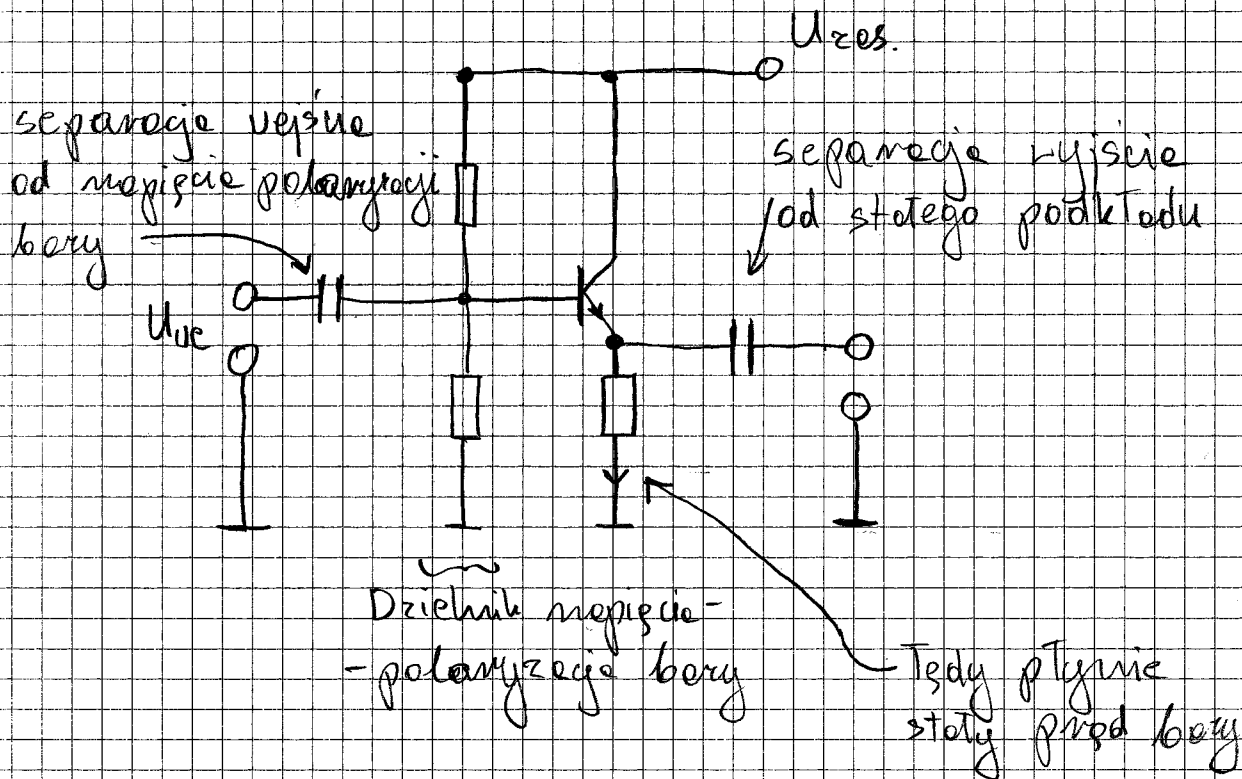 Uzas.
separacja wejścia
od napięcia polaryzacji
bazy
separacja wyjścia
od stałego podkładu
Uwe
Dzielnik napięcia -
- polaryzacja bazy
Tędy płynie
stały prąd bazy